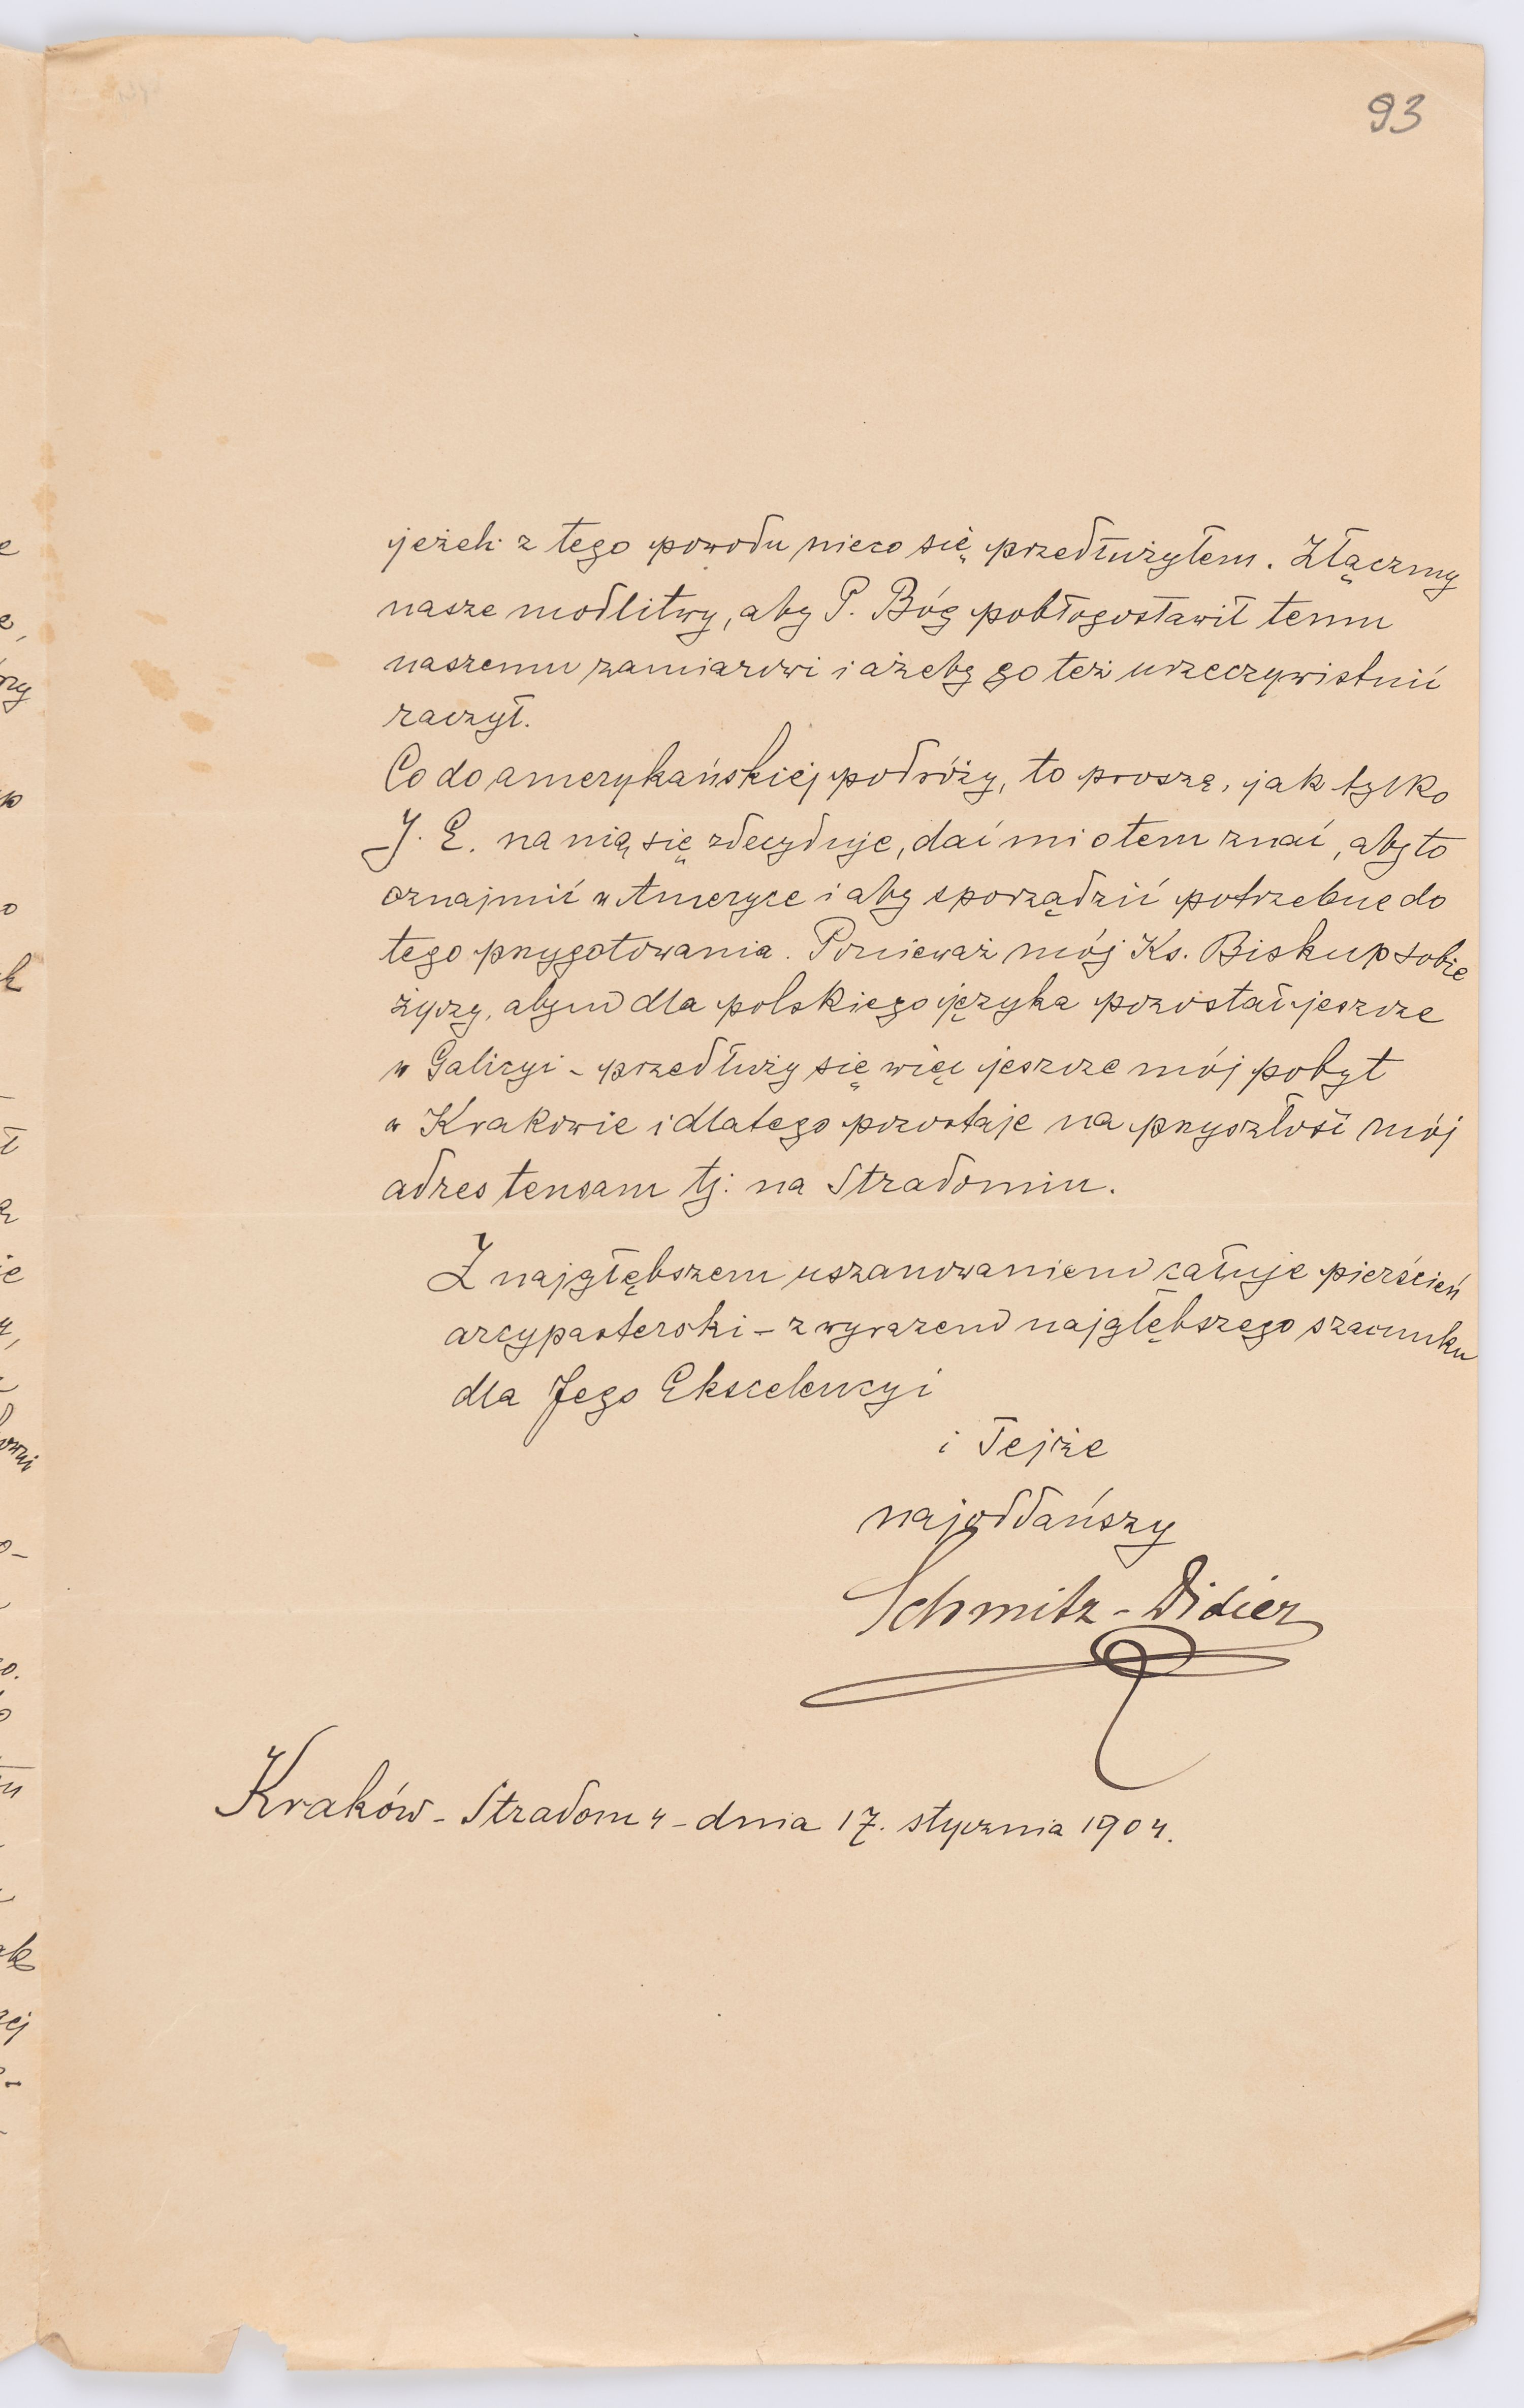 93
jeżeli z tego powodu nieco się przedłużyłem. Złączmy
nasze modlitwy, aby P. Bóg pobłogosławił temu
naszemu zamiarowi i ażeby go też urzeczywistnić
raczył.
Co do amerykańskiej podróży, to proszę, jak tylko
J. E. na nią się zdecyduje, dać mi o tem znać, aby to
oznajmić w Ameryce i aby sporządzić potrzebne do
tego przygotowania. Ponieważ mój Ks. Biskup sobie
życzy, abym dla polskiego języka pozostał jeszcze
w Galicyi – przedłuży się więc jeszcze mój pobyt
w Krakowie i dlatego pozostaje na przyszłość mój
adres tensam tj. na Stradomiu.
Z najgłębszem uszanowaniem całuje pierścień
arcypasterski – z wyrazem najgłębszego szacunku
dla Jego Ekscelencyi
i Tejże
najoddańszy
Schmitz – Didier
Kraków – Stradom 4 – dnia 17. stycznia 1904.